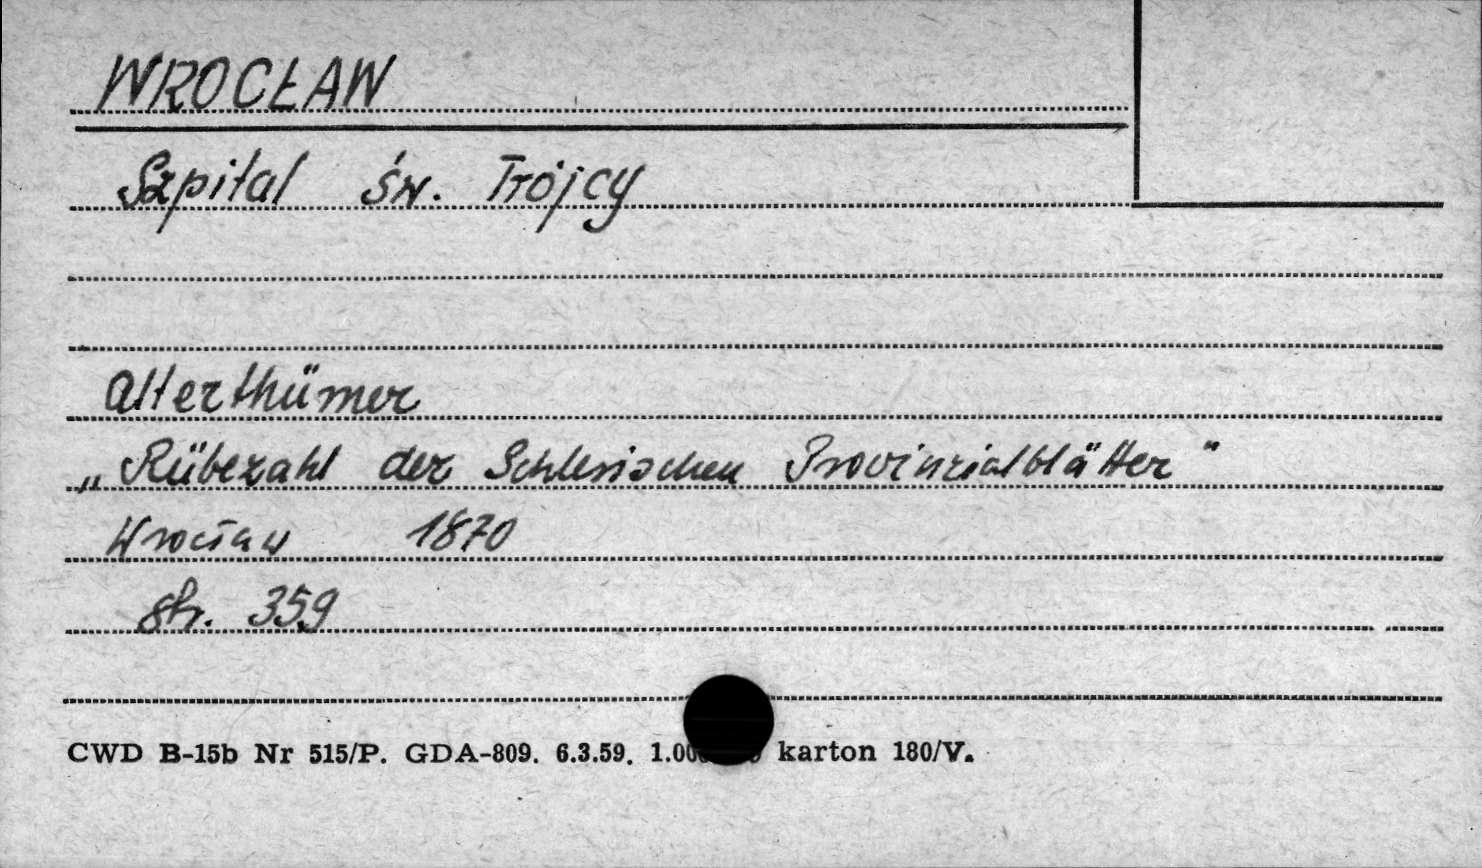 WROCŁAW
Szpital św. Trójcy
Alterthümer
„Rübezahl der Schlesischen Provinzialblätter"
Wrocław 1870
str. 359
CWD B-15b Nr 515/P. GDA-809. 6.3.59. karton 180/V.